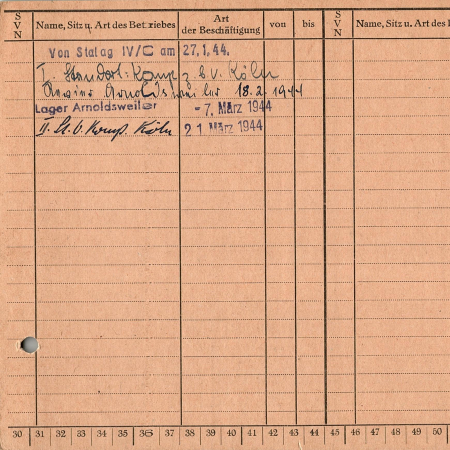 S V N Name, Sitz u. Art des Betriebes Art der Beschäftigung von bis S V N Name, Sitz u. Art des
Von Stalag IV/C am 27.1.44.
I. Standort-Komp z. b. V. Köln
Revier Arnoldsweiler 18.2.1944
Lager Arnoldsweiler - 7. März 1944
II. St. b. Komp. Köln 21 März 1944
30 31 32 33 34 35 36 37 38 39 40 41 42 43 44 45 46 47 48 49 50